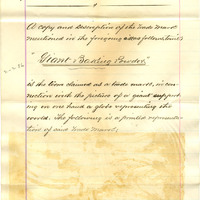 A copy and description of the Trade Mark
mentioned in the foregoing
"Giant Baking Powder"
is the term claimed as a trade mark, in con-
nection with the picture of a giant supporting
in one hand a globe representing the
world. The following is a printed represen-
tation of said Trade Mark: